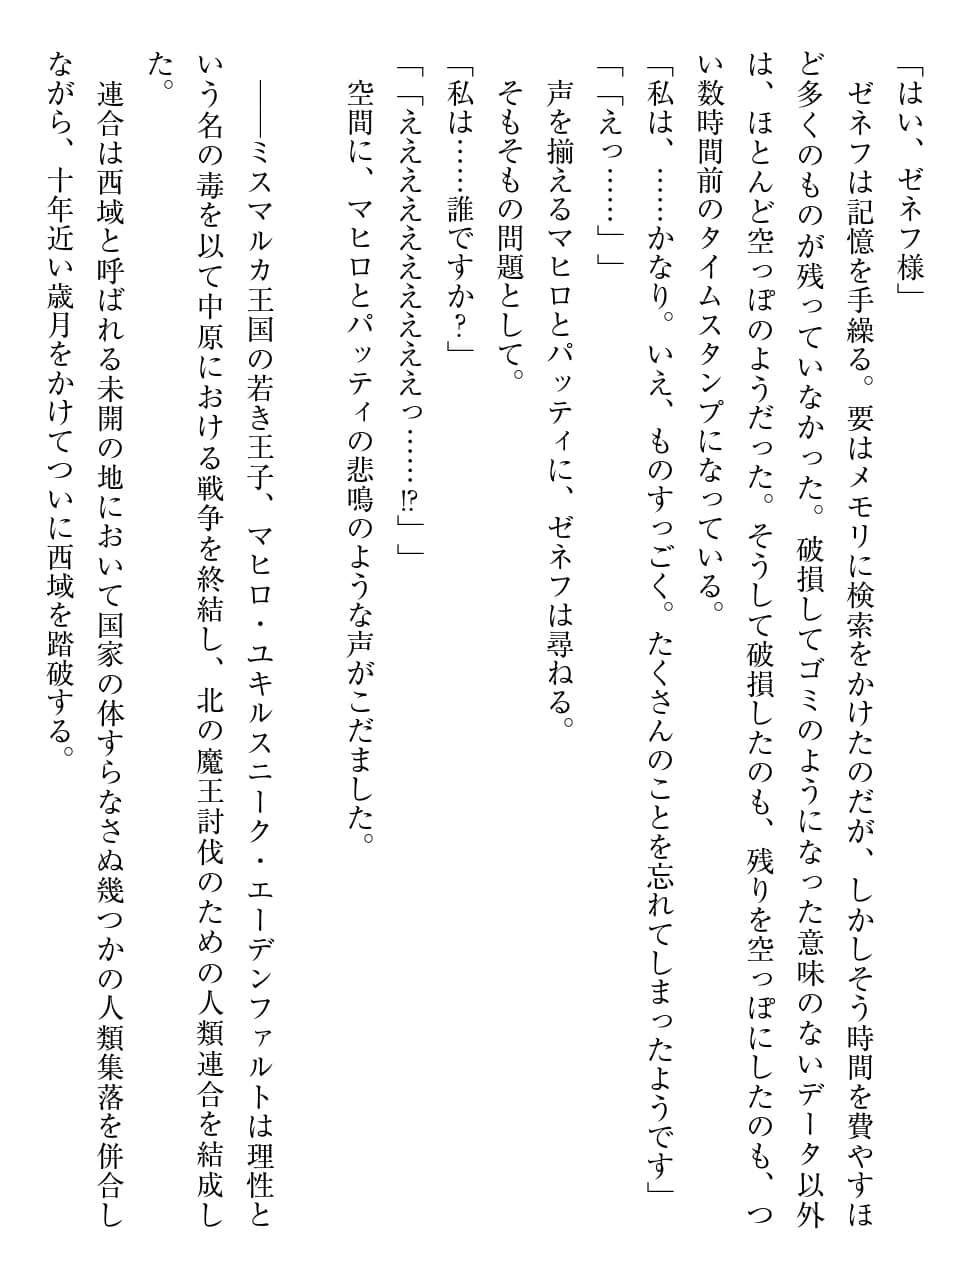 「はい、ゼネフ様」
　ゼネフは記憶を手繰る。要はメモリに検索をかけたのだが、しかしそう時間を費やすほ
ど多くのものが残っていなかった。破損してゴミのようになった意味のないデータ以外
は、ほとんど空っぽのようだった。そうして破損したのも、残りを空っぽにしたのも、つ
い数時間前のタイムスタンプになっている。
「私は、……かなり。いえ、ものすっごく。たくさんのことを忘れてしまったようです」
「「えっ……」」
　声を揃えるマヒロとパッティに、ゼネフは尋ねる。
　そもそもの問題として。
「私は……誰ですか？」
「「ええええええええええっ……!?」」
　空間に、マヒロとパッティの悲鳴のような声がこだました。
　――ミスマルカ王国の若き王子、マヒロ・ユキルスニーク・エーデンファルトは理性と
いう名の毒を以て中原における戦争を終結し、北の魔王討伐のための人類連合を結成し
た。
　連合は西域と呼ばれる未開の地において国家の体すらなさぬ幾つかの人類集落を併合し
ながら、十年近い歳月をかけてついに西域を踏破する。